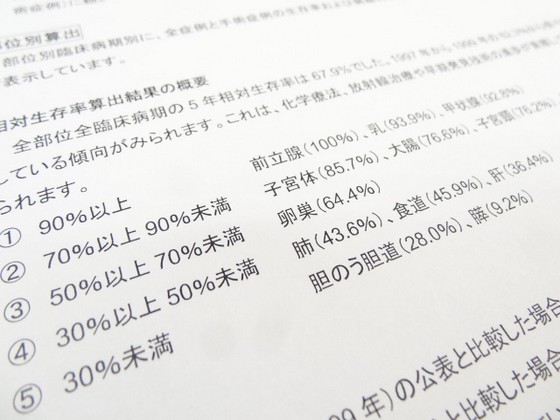 術症例に
部位別算出
部位別臨床病期別に、全症例と手術症例の生存率および
表示しています。
相対生存率算出結果の概要
全部位全臨床病期の5年相対生存率は67.9%でした。1997年から1999年の
している傾向がみられます。これは、化学療法、放射線治療や早期発見技術の進歩が
られます。
① 90%以上 前立腺(100%)、乳(93.9%)、甲状腺(92.8%)
② 70%以上 90%未満 子宮体(85.7%)、大腸(76.6%)、子宮頸(76.2%)
③ 50%以上 70%未満 卵巣(64.4%)
④ 30%以上 50%未満 肺(43.6%)、食道(45.9%)、肝(36.4%)
⑤ 30%未満 胆のう胆道(28.0%)、膵(9.2%)
99年)の公表と比較した場合
と比較した場合